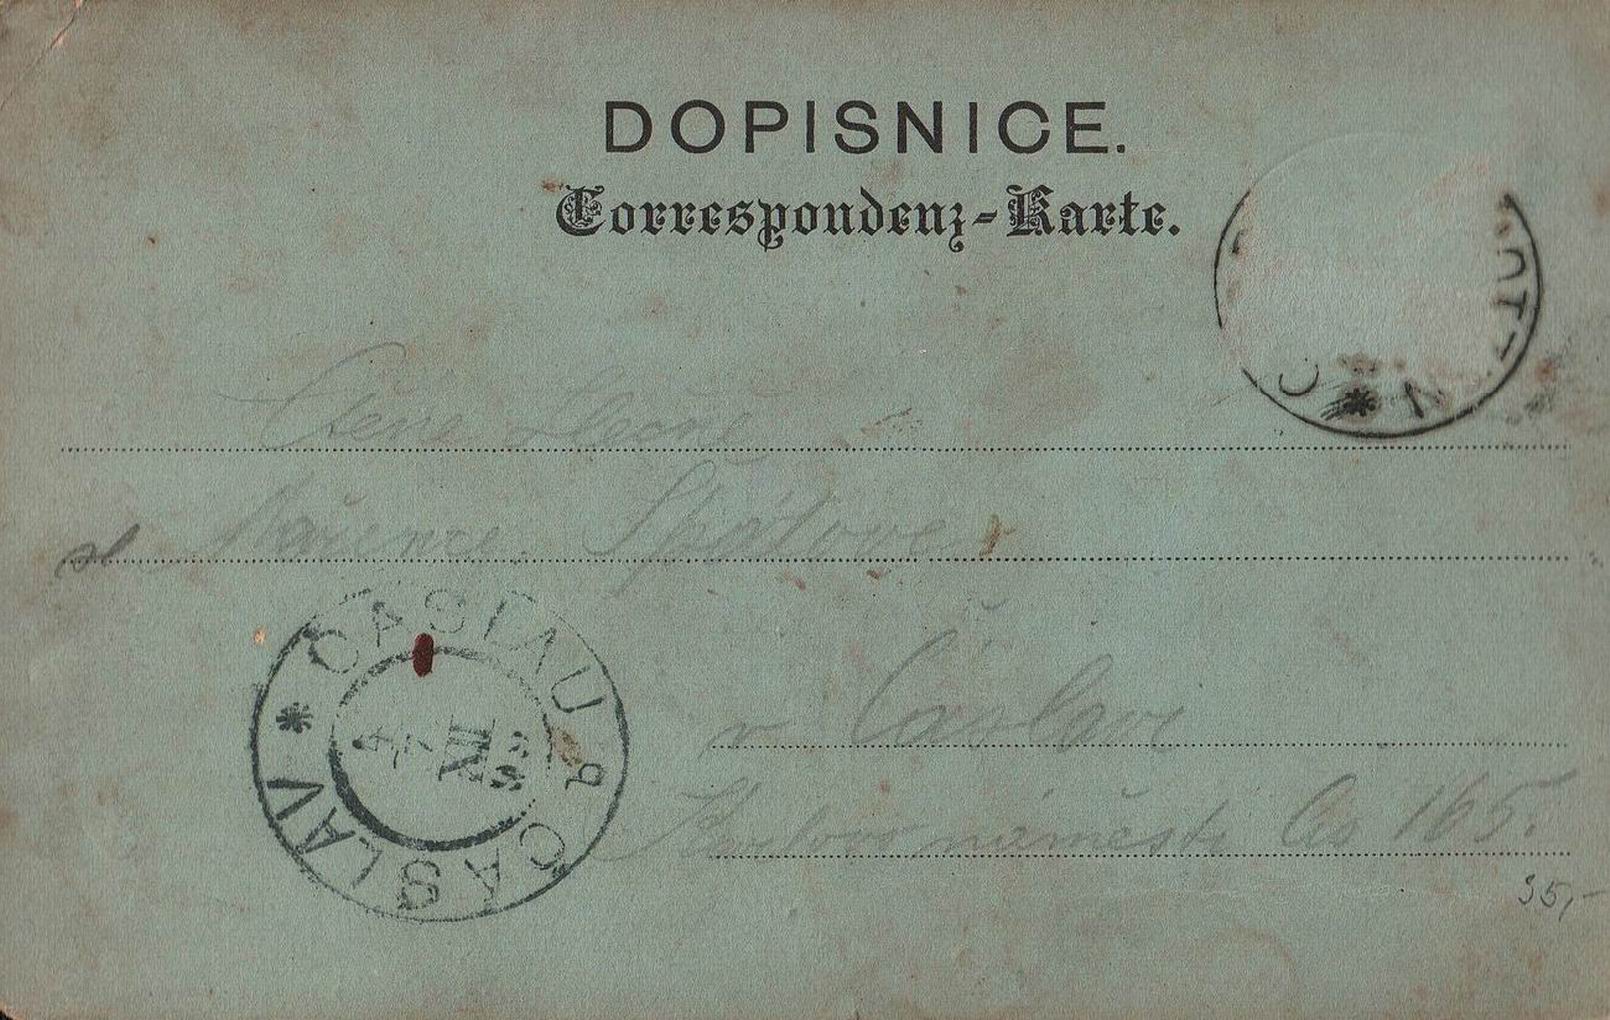 DOPISNICE.
Correspondenz-Karte.
Ctěná slečna
Mařence Špátove
v Čáslavi
Karlovo náměstí čís 165.
35,-
CASLAU a
ČÁSLAV *